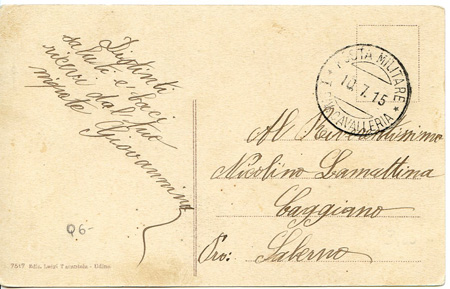 Distinti
saluti e baci
ricevi dal tuo
nipote Giovannino
POSTA MILITARE
10.7.15
CAVALLERIA
Al Reverentissimo
Nicolino Lamattina
Caggiano
Pro: Salerno
Q6-
7617 Ediz. Luigi Tarantola - Udine